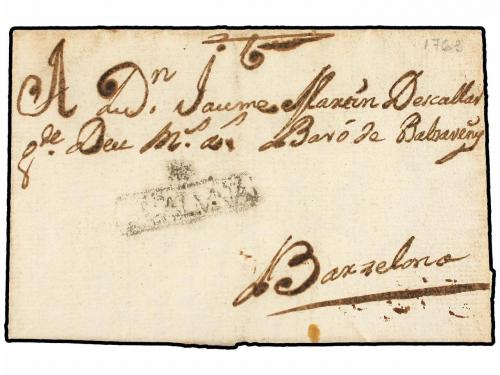 1768
A Dn Jaume Martin Descallar
gde Deu ms as Baró de Balsareny
CATALVÑA
Barzelona